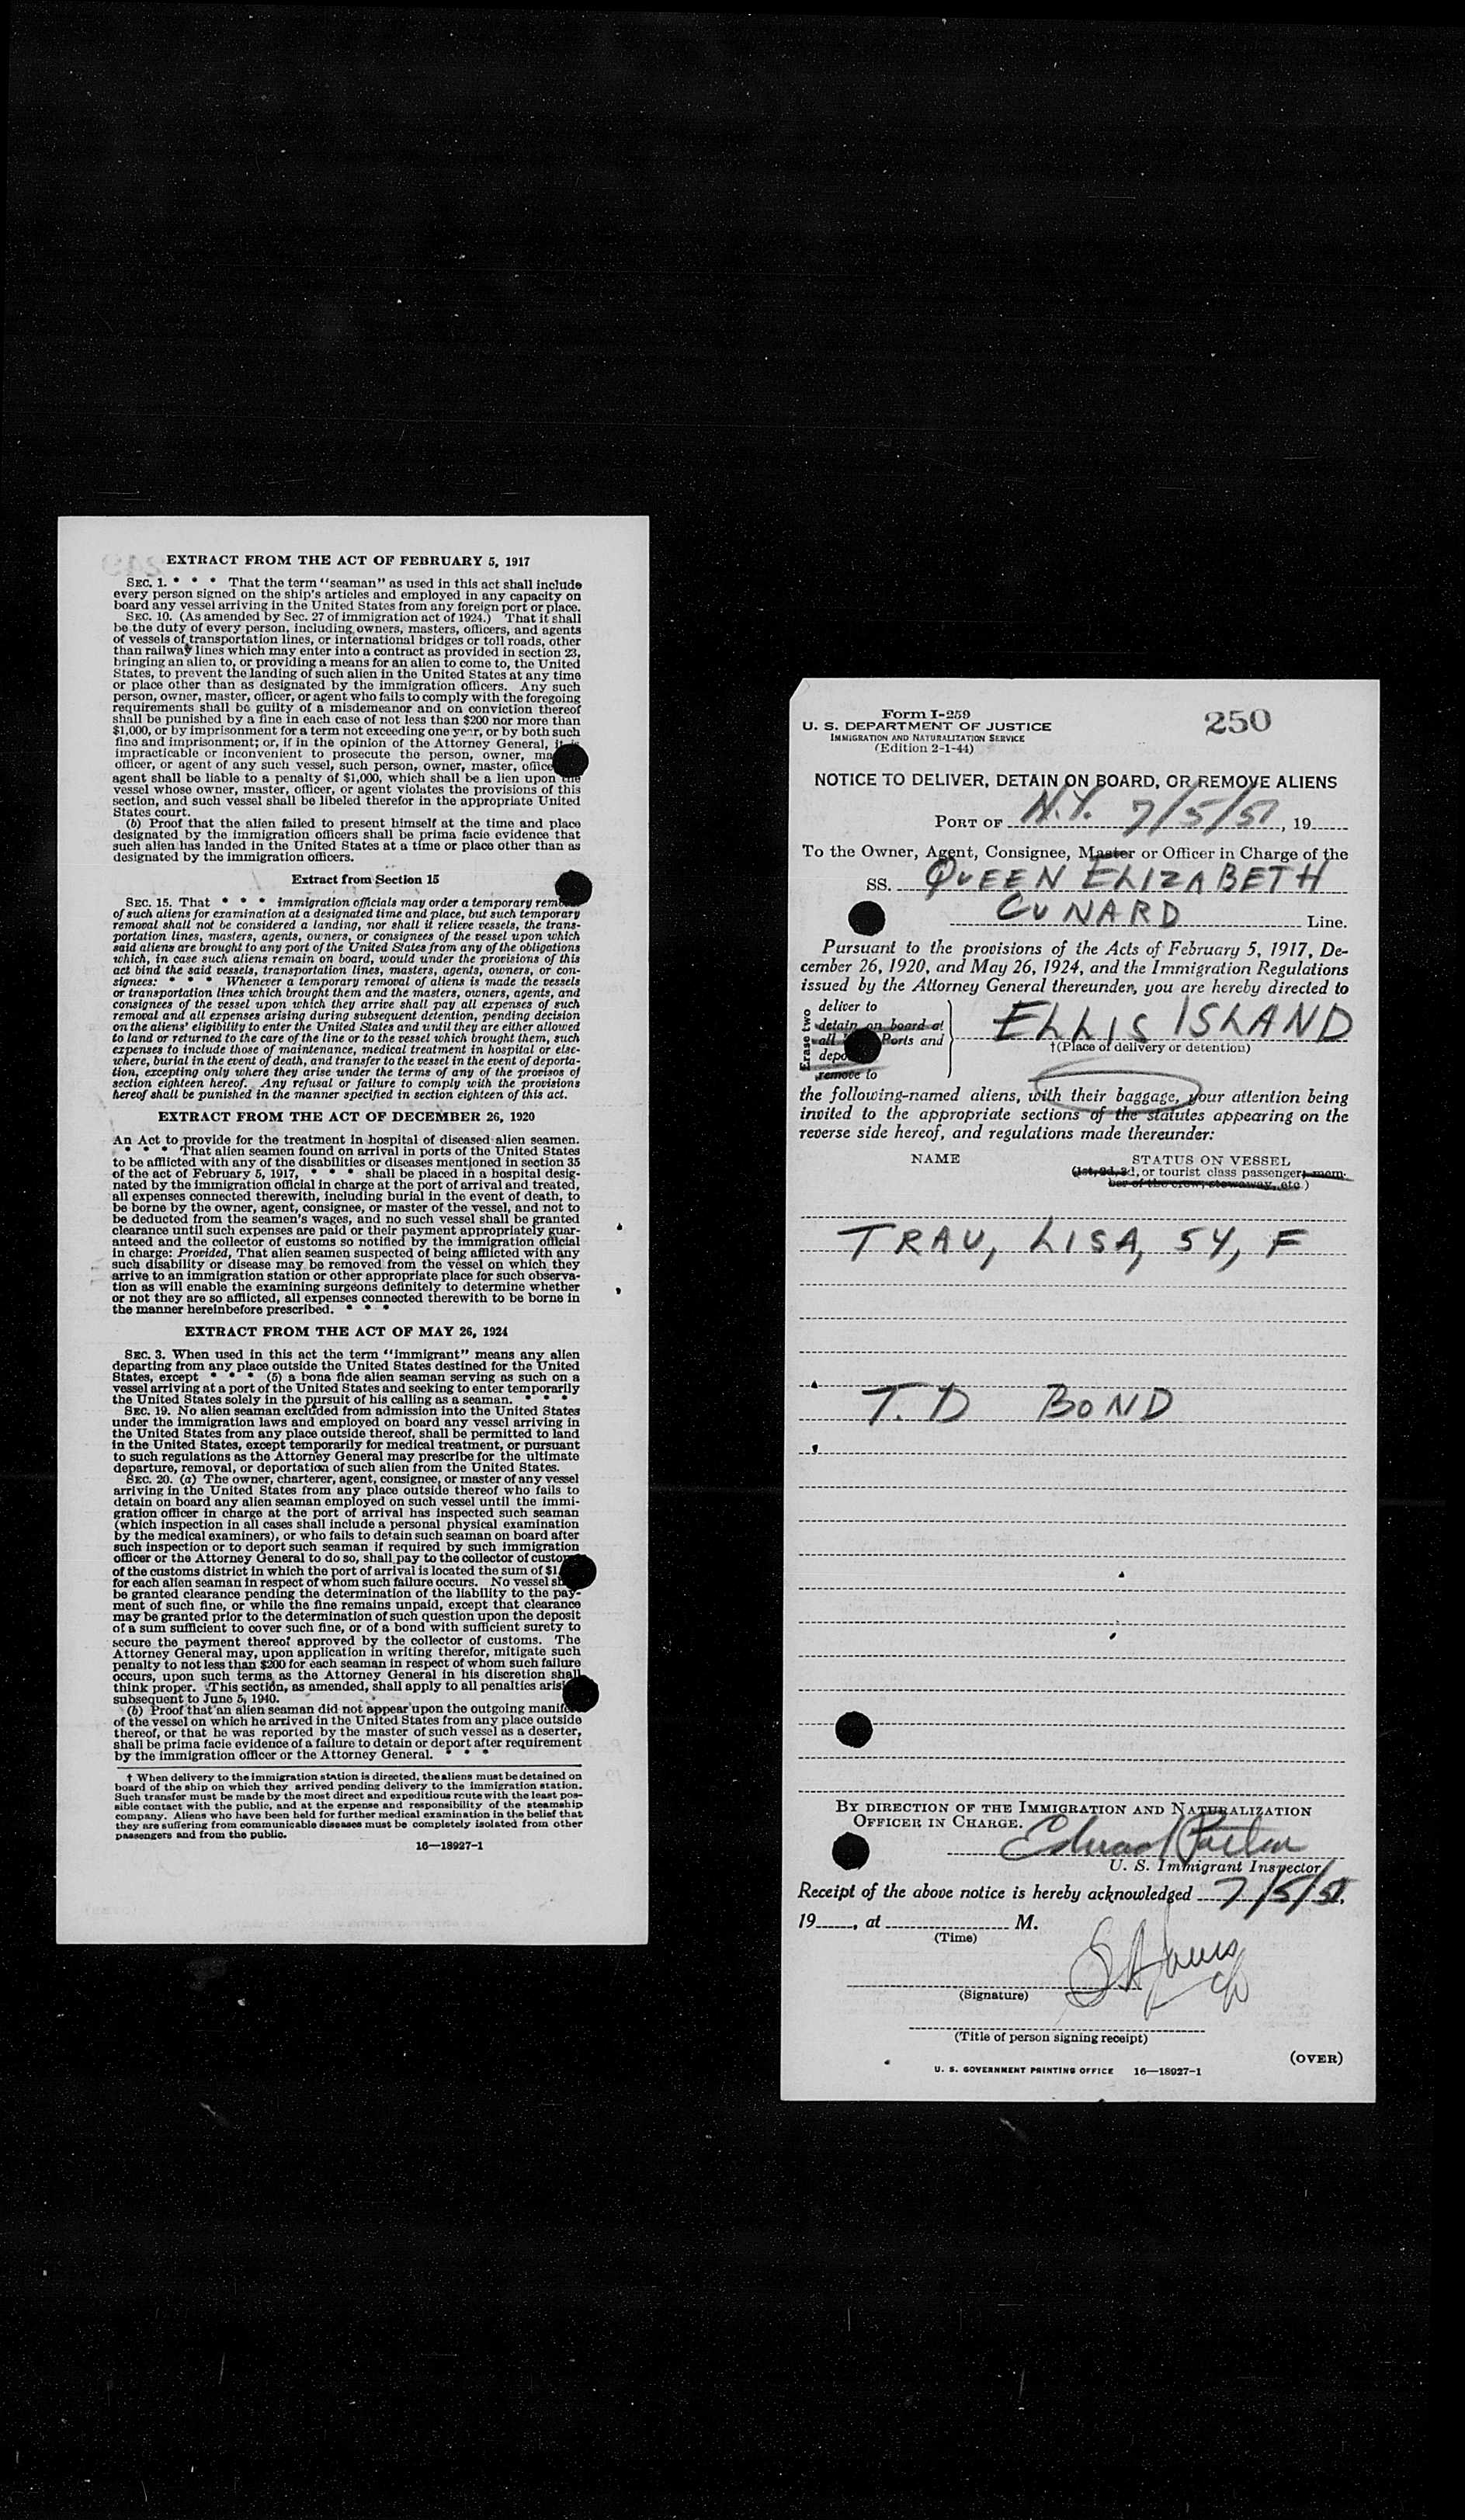 EXTRACT FROM THE ACT OF FEBRUARY 5, 1917
SEC. 1. * * * That the term "seaman" as used in this act shall include
every person signed on the ship's articles and employed in any capacity on
board any vessel arriving in the United States from any foreign port or place.
SEC. 10. (As amended by Sec. 27 of immigration act of 1924.) That it shall
be the duty of every person, including owners, masters, officers, and agents
of vessels of transportation lines, or international bridges or toll roads, other
than railway lines which may enter into a contract as provided in section 23,
bringing an alien to, or providing a means for an alien to come to, the United
States, to prevent the landing of such alien in the United States at any time
or place other than as designated by the immigration officers. Any such
person, owner, master, officer, or agent who fails to comply with the foregoing
requirements shall be guilty of a misdemeanor and on conviction thereof
shall be punished by a fine in each case of not less than $200 nor more than
$1,000, or by imprisonment for a term not exceeding one year, or by both such
fine and imprisonment; or, if in the opinion of the Attorney General, it is
impracticable or inconvenient to prosecute the person, owner, ma
officer, or agent of any such vessel, such person, owner, master, office
agent shall be liable to a penalty of $1,000, which shall be a lien upon the
vessel whose owner, master, officer, or agent violates the provisions of this
section, and such vessel shall be libeled therefor in the appropriate United
States court.
(b) Proof that the alien failed to present himself at the time and place
designated by the immigration officers shall be prima facie evidence that
such alien has landed in the United States at a time or place other than as
designated by the immigration officers.
Extract from Section 15
SEC. 15. That * * * immigration officials may order a temporary rem
of such aliens for examination at a designated time and place, but such temporary
removal shall not be considered a landing, nor shall it relieve vessels, the trans-
portation lines, masters, agents, owners, or consignees of the vessel upon which
said aliens are brought to any port of the United States from any of the obligations
which, in case such aliens remain on board, would under the provisions of this
act bind the said vessels, transportation lines, masters, agents, owners, or con-
signees: * * * Whenever a temporary removal of aliens is made the vessels
or transportation lines which brought them and the masters, owners, agents, and
consignees of the vessel upon which they arrive shall pay all expenses of such
removal and all expenses arising during subsequent detention, pending decision
on the aliens' eligibility to enter the United States and until they are either allowed
to land or returned to the care of the line or to the vessel which brought them, such
expenses to include those of maintenance, medical treatment in hospital or else-
where, burial in the event of death, and transfer to the vessel in the event of deporta-
tion, excepting only where they arise under the terms of any of the provisos of
section eighteen hereof. Any refusal or failure to comply with the provisions
hereof shall be punished in the manner specified in section eighteen of this act.
EXTRACT FROM THE ACT OF DECEMBER 26, 1920
An Act to provide for the treatment in hospital of diseased alien seamen.
* * * That alien seamen found on arrival in ports of the United States
to be afflicted with any of the disabilities or diseases mentioned in section 35
of the act of February 5, 1917, * * * shall be placed in a hospital desig-
nated by the immigration official in charge at the port of arrival and treated,
all expenses connected therewith, including burial in the event of death, to
be borne by the owner, agent, consignee, or master of the vessel, and not to
be deducted from the seamen's wages, and no such vessel shall be granted
clearance until such expenses are paid or their payment appropriately guar-
anteed and the collector of customs so notified by the immigration official
in charge: Provided, That alien seamen suspected of being afflicted with any
such disability or disease may be removed from the vessel on which they
arrive to an immigration station or other appropriate place for such observa-
tion as will enable the examining surgeons definitely to determine whether
or not they are so afflicted, all expenses connected therewith to be borne in
the manner hereinbefore prescribed. * * *
EXTRACT FROM THE ACT OF MAY 26, 1924
SEC. 3. When used in this act the term "immigrant" means any alien
departing from any place outside the United States destined for the United
States, except * * * (5) a bona fide alien seaman serving as such on a
vessel arriving at a port of the United States and seeking to enter temporarily
the United States solely in the pursuit of his calling as a seaman. * * *
SEC. 19. No alien seaman excluded from admission into the United States
under the immigration laws and employed on board any vessel arriving in
the United States from any place outside thereof, shall be permitted to land
in the United States, except temporarily for medical treatment, or pursuant
to such regulations as the Attorney General may prescribe for the ultimate
departure, removal, or deportation of such alien from the United States.
SEC. 20. (a) The owner, charterer, agent, consignee, or master of any vessel
arriving in the United States from any place outside thereof who fails to
detain on board any alien seaman employed on such vessel until the immi-
gration officer in charge at the port of arrival has inspected such seaman
(which inspection in all cases shall include a personal physical examination
by the medical examiners), or who fails to detain such seaman on board after
such inspection or to deport such seaman if required by such immigration
officer or the Attorney General to do so, shall pay to the collector of custom
of the customs district in which the port of arrival is located the sum of $1,
for each alien seaman in respect of whom such failure occurs. No vessel sh
be granted clearance pending the determination of the liability to the pay-
ment of such fine, or while the fine remains unpaid, except that clearance
may be granted prior to the determination of such question upon the deposit
of a sum sufficient to cover such fine, or of a bond with sufficient surety to
secure the payment thereof approved by the collector of customs. The
Attorney General may, upon application in writing therefor, mitigate such
penalty to not less than $200 for each seaman in respect of whom such failure
occurs, upon such terms as the Attorney General in his discretion shall
think proper. This section, as amended, shall apply to all penalties arisi
subsequent to June 5, 1940.
(b) Proof that an alien seaman did not appear upon the outgoing manife
of the vessel on which he arrived in the United States from any place outside
thereof, or that he was reported by the master of such vessel as a deserter,
shall be prima facie evidence of a failure to detain or deport after requirement
by the immigration officer or the Attorney General. * * *
† When delivery to the immigration station is directed, the aliens must be detained on
board of the ship on which they arrived pending delivery to the immigration station.
Such transfer must be made by the most direct and expeditious route with the least pos-
sible contact with the public, and at the expense and responsibility of the steamship
company. Aliens who have been held for further medical examination in the belief that
they are suffering from communicable diseases must be completely isolated from other
passengers and from the public.
16—18927-1
Form I-259
U. S. DEPARTMENT OF JUSTICE
IMMIGRATION AND NATURALIZATION SERVICE
(Edition 2-1-44)
250
NOTICE TO DELIVER, DETAIN ON BOARD, OR REMOVE ALIENS
PORT OF N.Y. 7/5/51, 19
To the Owner, Agent, Consignee, Master or Officer in Charge of the
SS. QUEEN ELIZABETH
CUNARD Line.
Pursuant to the provisions of the Acts of February 5, 1917, De-
cember 26, 1920, and May 26, 1924, and the Immigration Regulations
issued by the Attorney General thereunder, you are hereby directed to
Erase two
deliver to
detain on board at
all Ports and
depo
remove to
ELLIS ISLAND
†(Place of delivery or detention)
the following-named aliens, with their baggage, your attention being
invited to the appropriate sections of the statutes appearing on the
reverse side hereof, and regulations made thereunder:
NAME STATUS ON VESSEL
(1st, 2d, 3d, or tourist class passenger; mem-
ber of the crew; stowaway, etc.)
TRAU, LISA, 5Y, F
T. D BOND
BY DIRECTION OF THE IMMIGRATION AND NATURALIZATION
OFFICER IN CHARGE.
U. S. Immigrant Inspector
Receipt of the above notice is hereby acknowledged 7/5/51,
19, at M.
(Time)
(Signature)
(Title of person signing receipt)
(OVER)
U. S. GOVERNMENT PRINTING OFFICE 16—18927-1